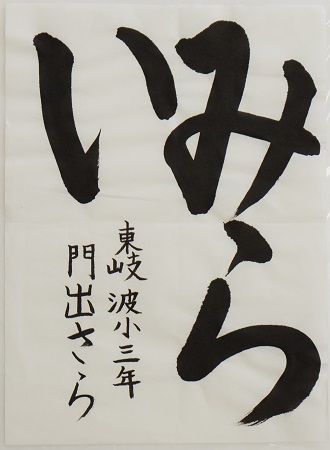 みらい
東岐波小三年
門出さくら